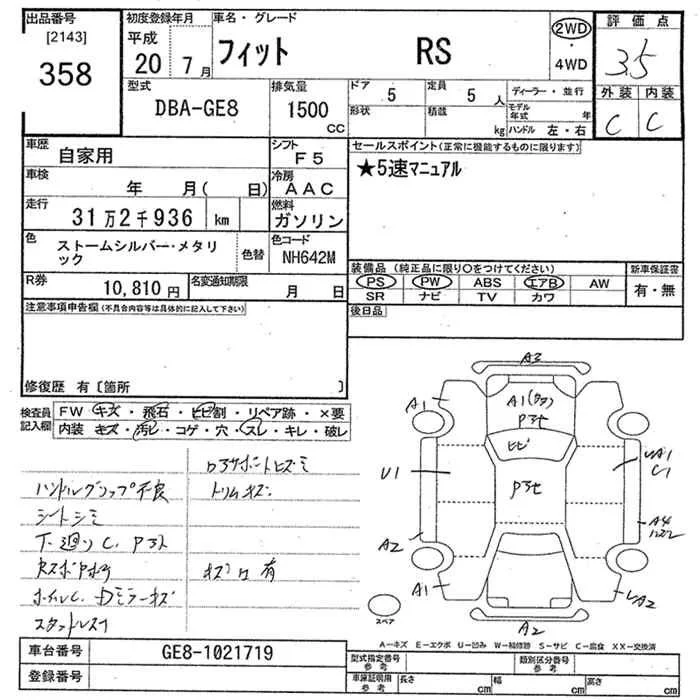 出品番号
[2143]
358
初度登録年月
平成
20 7月
車名・グレード
フィット RS
2WD
・
4WD
評価点
3.5
外装 内装
C C
型式
DBA-GE8
排気量
1500
CC
ドア
5
定員
5 人
形状
積載
kg
ディーラー・並行
モデル年式 年
ハンドル 左・右
車歴
自家用
シフト
F5
車検
年 月( 日)
冷房
AAC
走行
31万2千936 km
燃料
ガソリン
色
ストームシルバー・メタリ
ック
色替
色コード
NH642M
R券
10,810円
名変通知期限
月 日
セールスポイント(正常に機能するものに限ります)
★5速マニュアル
装備品(純正品に限り〇をつけてください)
PS PW ABS エアB AW
SR ナビ TV カワ
新車保証書
有・無
後日品
注意事項申告欄(不具合内容等は具体的に記入して下さい)
修復歴 有〔箇所 〕
検査員
記入欄
FW キズ・飛石・ヒビ割・リペア跡・×要
内装 キズ・汚レ・コゲ・穴・スレ・キレ・破レ
ハンドルグリップ不良
シートシミ
下廻りC
トリムキズ
キズ凹有
A3
A1
A1
ヒビ
U1
C1
A4
A2
A1
A2
A2
スペア
A-キズ E-エクボ U-凹み W-補修跡 S-サビ C-腐食 XX-交換済
車台番号
GE8-1021719
登録番号
型式指定番号
参考
類別区分番号
参考
車庫証明用
参考
長さ cm
幅 cm
高さ cm